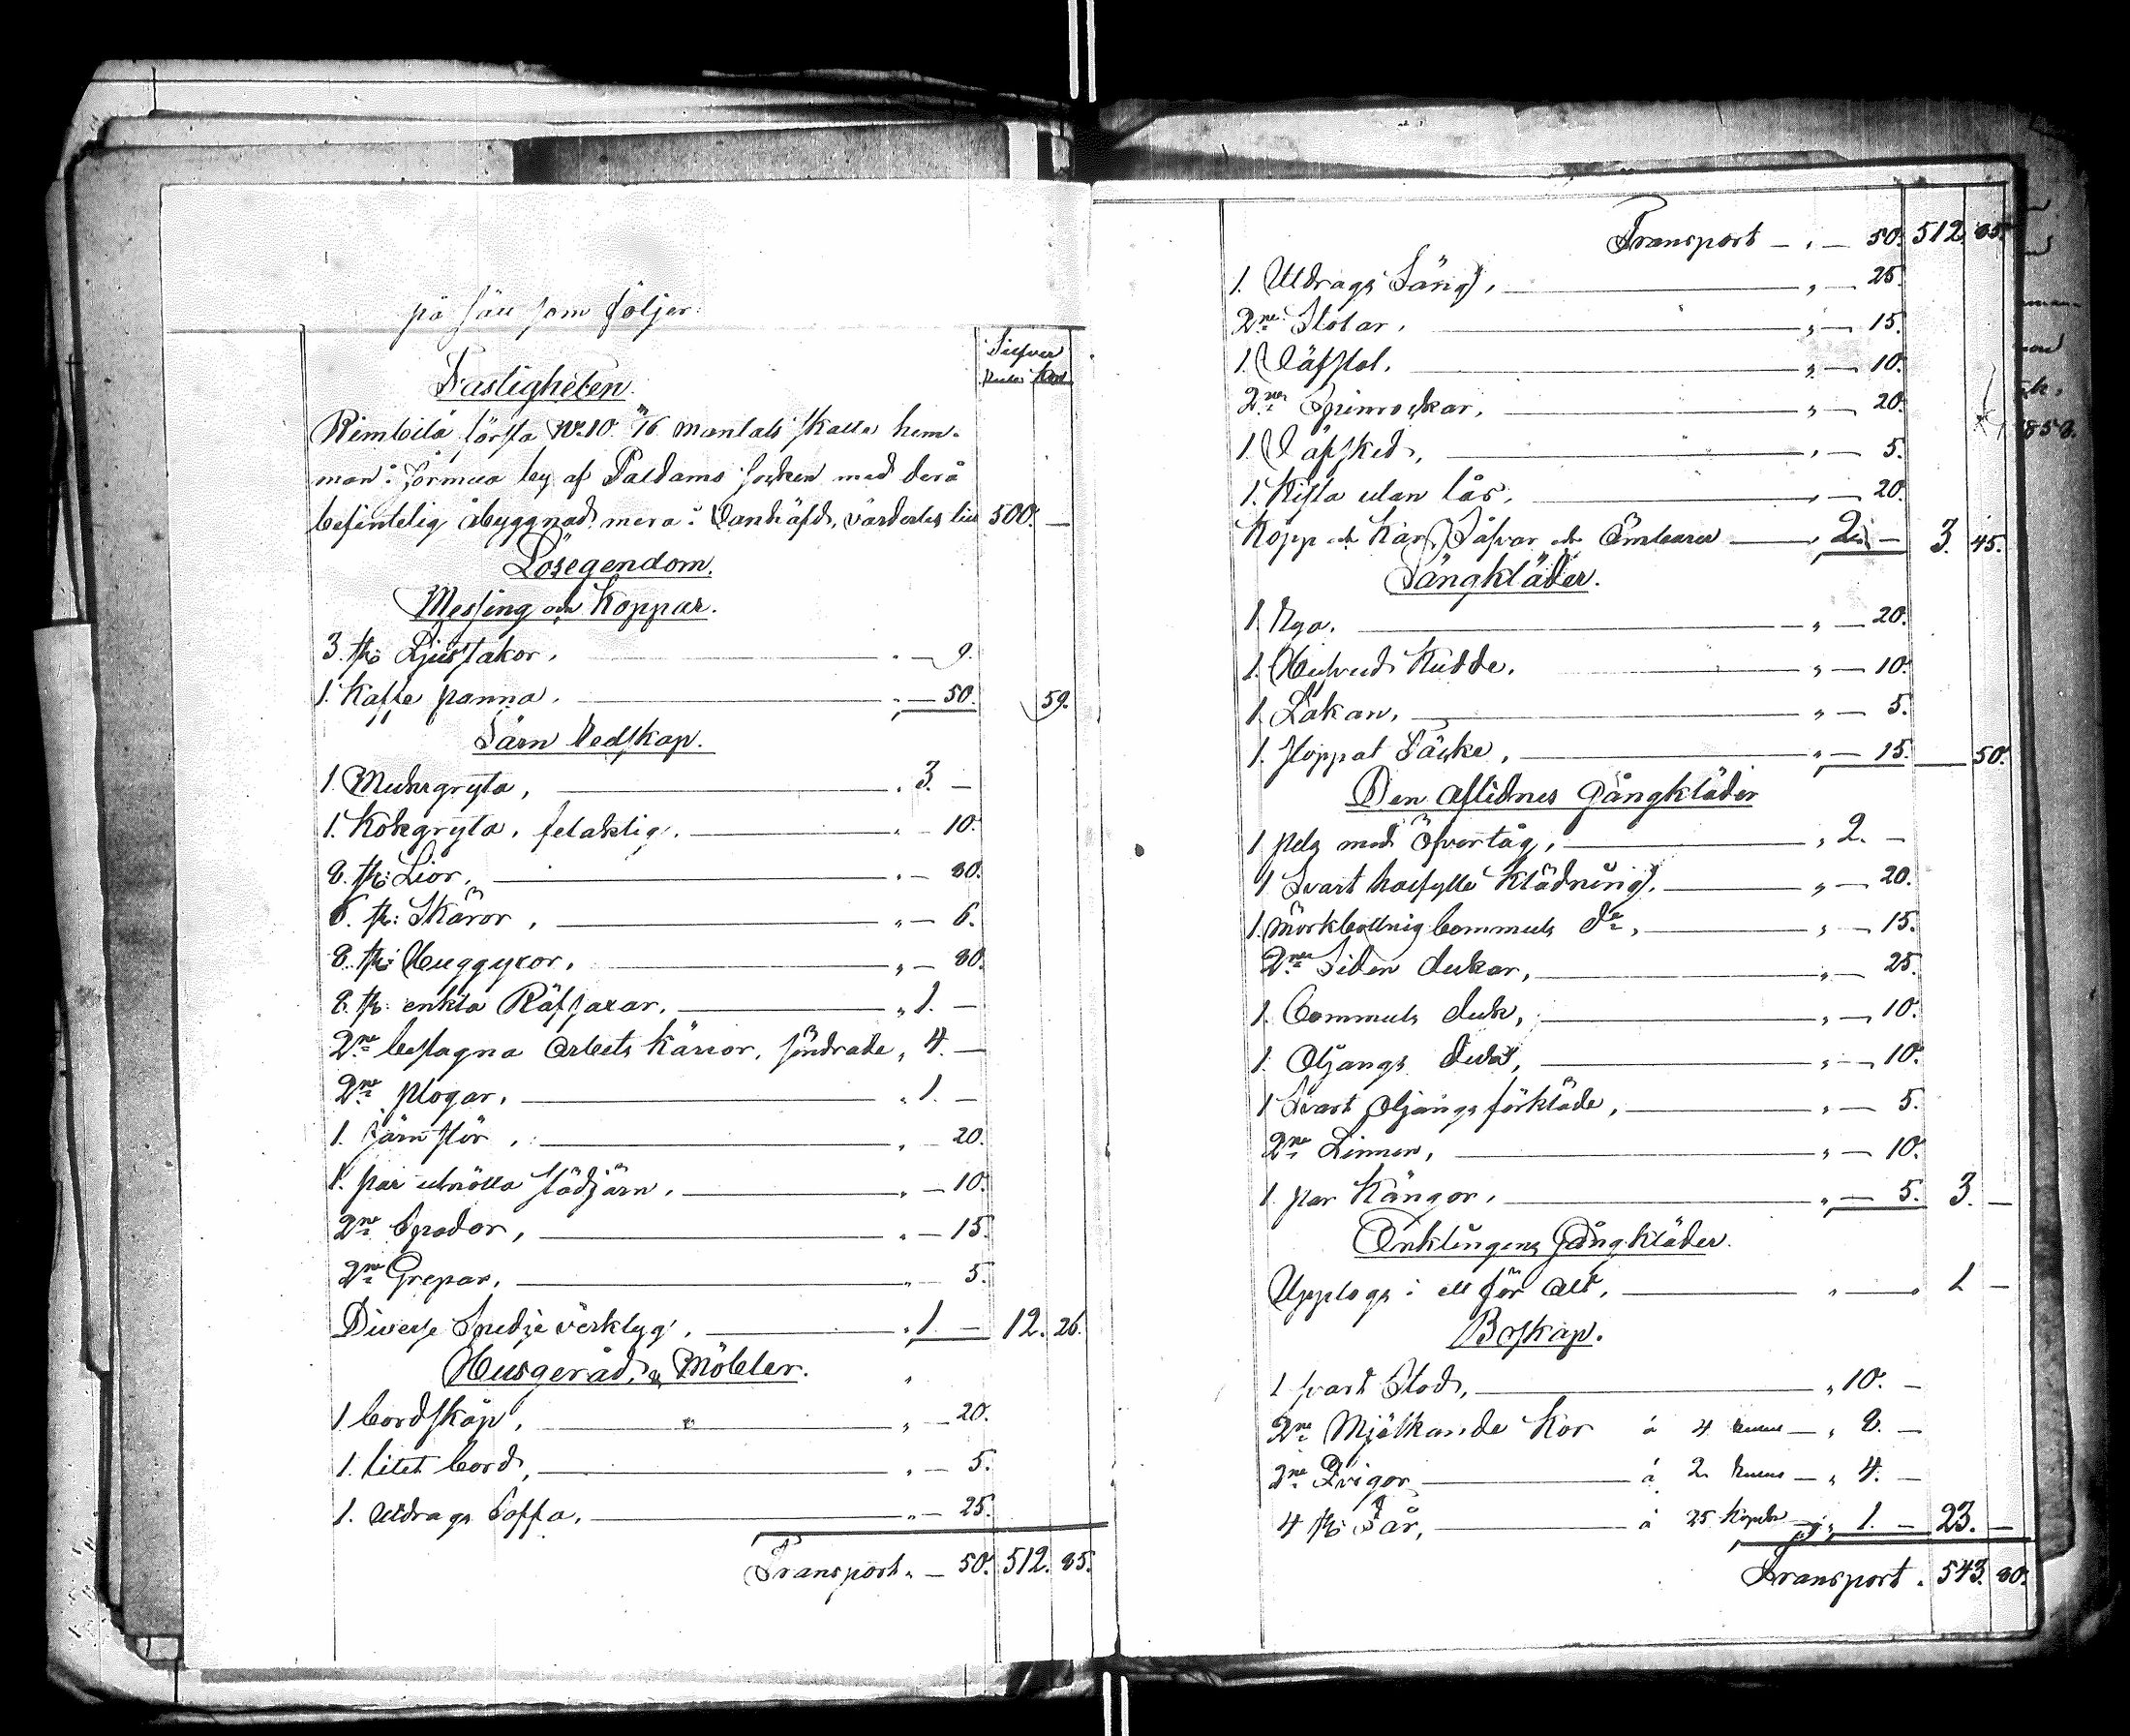 på sätt som följer:
Silfver
Rubel Kop
Fastigheten.
Rimbilä första No 10. 7/16 mantals skatte hem-
man i Jormua by af Paldamo socken med derå
befintelig åbyggnad mera i vanhäfd, värdertes till 500. —
Lösegendom.
Messing och Koppar.
3. st: Ljusstakor. " — 9.
1. Kaffe panna. " — 50. 59.
Järn Redskap.
1. Muhrgryta, " 3. —
1. Kokgryta, felaktig. " — 10.
8. st: Lior, " — 80.
6. st: Skäror, " — 6.
8. st: Huggyxor, " — 80.
8. st: enkla Räfsaxar, " 1. —
2ne beslagna Arbets Kärror, söndrade " 4. —
2ne plogar. " 1. —
1. Järn stör, " — 20.
1. par utnötta städjärn. " — 10.
2ne Spador, " — 15.
2ne Grepar. " — 5.
Diverse Smedje verktyg. " 1. — 12. 26.
Husgeråd & Möbler.
1 bordskåp, " — 20.
1. litet bord, " — 5.
1. utdrags Soffa, " — 25.
Transport " — 50. 512. 85.
Transport — " — 50. 512. 85.
1. Utdrags Säng, " — 25.
2ne Stolar, " — 15.
1. Väfstol. " — 10.
2ne Spinrockar, " — 20.
1. Väfsked, " — 5.
1. Kista utan lås. " — 20.
Köpp och Kar, Såfvar och Ämbarer " 2. — 3. 45.
Sängkläder.
1. Rya. " — 20.
1. Hufvud Kudde. " — 10.
1. Lakan, " — 5.
1. stoppat Täcke, " — 15. — 50.
Den Aflidnes Gångkläder
1 pels med Öfvertåg, " 2. —
1 Svart halfylle Klädning, " — 20.
1. mörkbottnig bommuls do, " — 15.
2ne Siden dukar, " — 25.
1. Bommuls duk, " — 10.
1. Oljangs duk, " — 10.
1 Svart Oljangs förkläde, " — 5.
2ne Linnen, " — 10.
1. par Kängor. " — 5. 3. —
Enklingens Gångkläder.
Upptogs i ett för allt, " — " 1 —
Boskap.
1 svart Stod, " 10. —
2ne Mjölkande Kor à 4 Rubel — " 8. —
2ne Qvigor à 2 Rubel — " 4. —
4 st: Får, à 25 Kopek " 1. — 23. —
Transport. 543. 80.